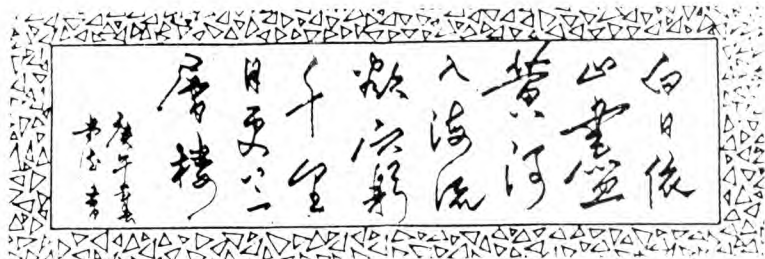 白日依
山盡
黄河
入海流
欲窮
千里
目更上一
層楼
庚午
書